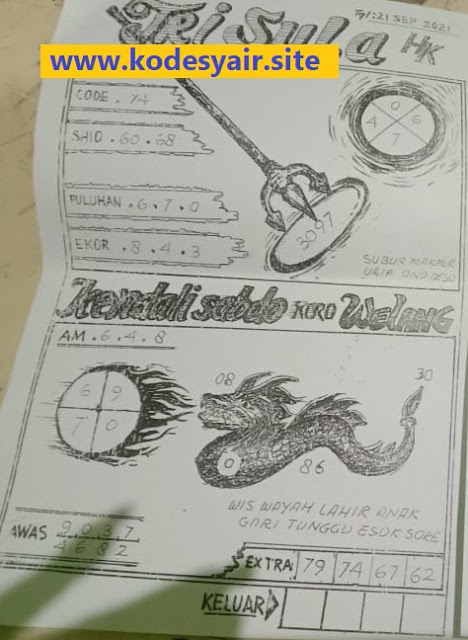 Tri Sula HK
Tgl:21 SEP 2021
www.kodesyair.site
CODE . 74
SHIO . 60 . 68
PULUHAN . 6 . 7 . 0
EKOR . 8 . 4 . 3
0
4 6
7
3097
SUBUR MAKMUR
URIP ONO DESO
Kendali sabdo KERO WELANG
AM . 6 . 4 . 8
6 9
7 0
08
30
0
86
WIS WAYAH LAHIR ANAK
GARI TUNGGU ESUK SORE
AWAS 9 0 3 7
4 6 8 2
EXTRA 79 74 67 62
KELUAR